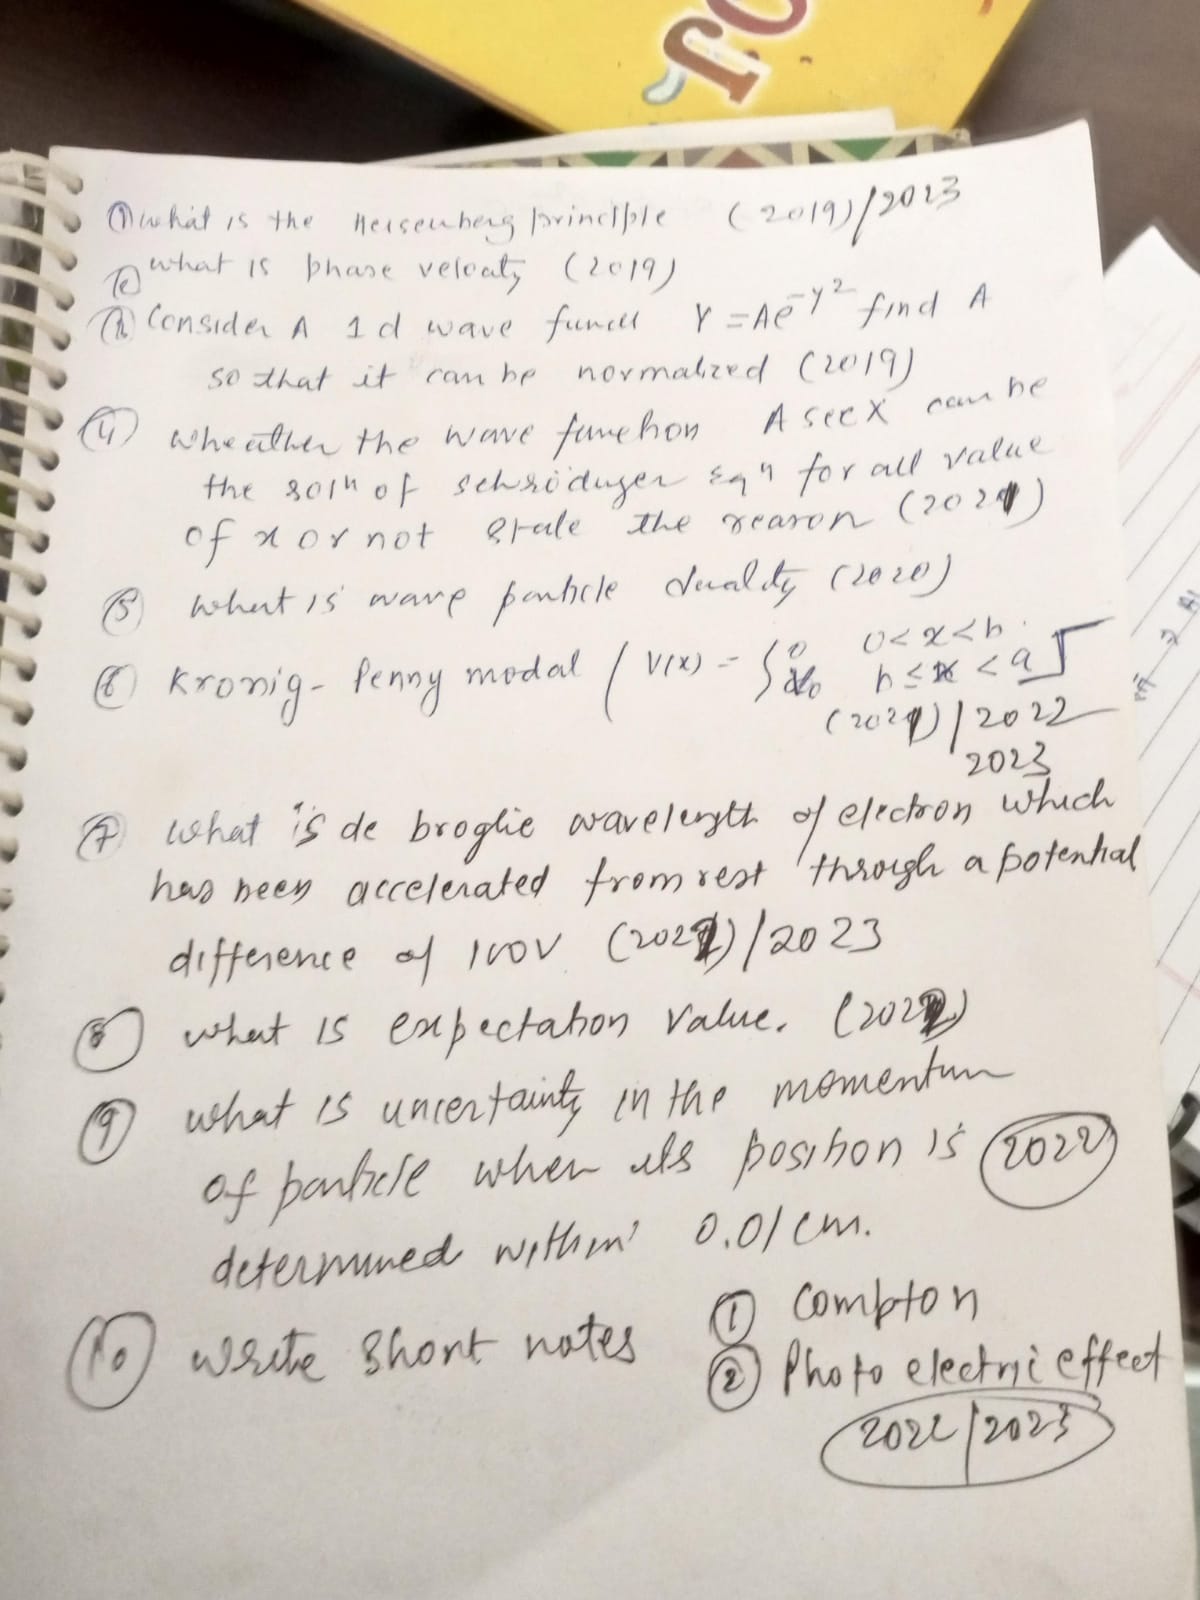 TO
① what is the Heisenberg principle (2019)/2023
② what is phase velocity (2019)
③ Consider A 1 d wave funcll Y = Ae^-y2 find A
so that it can be normalized (2019)
④ wheather the wave function A sec X can be
the solⁿ of schrödinger Eqⁿ for all value
of x or not state the reason (2021)
⑤ what is wave particle duality (2020)
⑥ Kronig-Penny modal / V(x) = { 0 0<x<b
b≤x<a
(2021) / 2022
2023
⑦ what is de broglie wavelength of electron which
has been accelerated from rest through a potential
difference of 100V (2021)/2023
⑧ what is expectation value. (2022)
⑨ what is uncertainty in the momentum
of particle when its position is 2022
determined within 0.01 cm.
⑩ write short notes ① Compton
② Photo electric effect
2022/2023